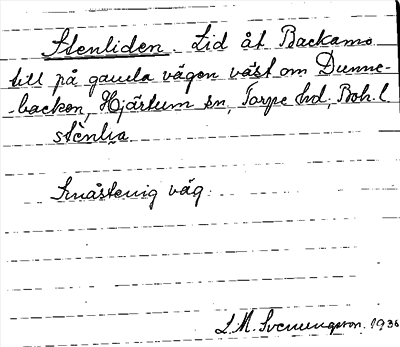 Stenliden. Lid åt Backamo
till på gamla vägen väst om Dunne-
-backen, Hjärtum sn, Torpe hd, Boh. l
stènlia
Småstenig väg.
S.M. Svenungsson. 1936